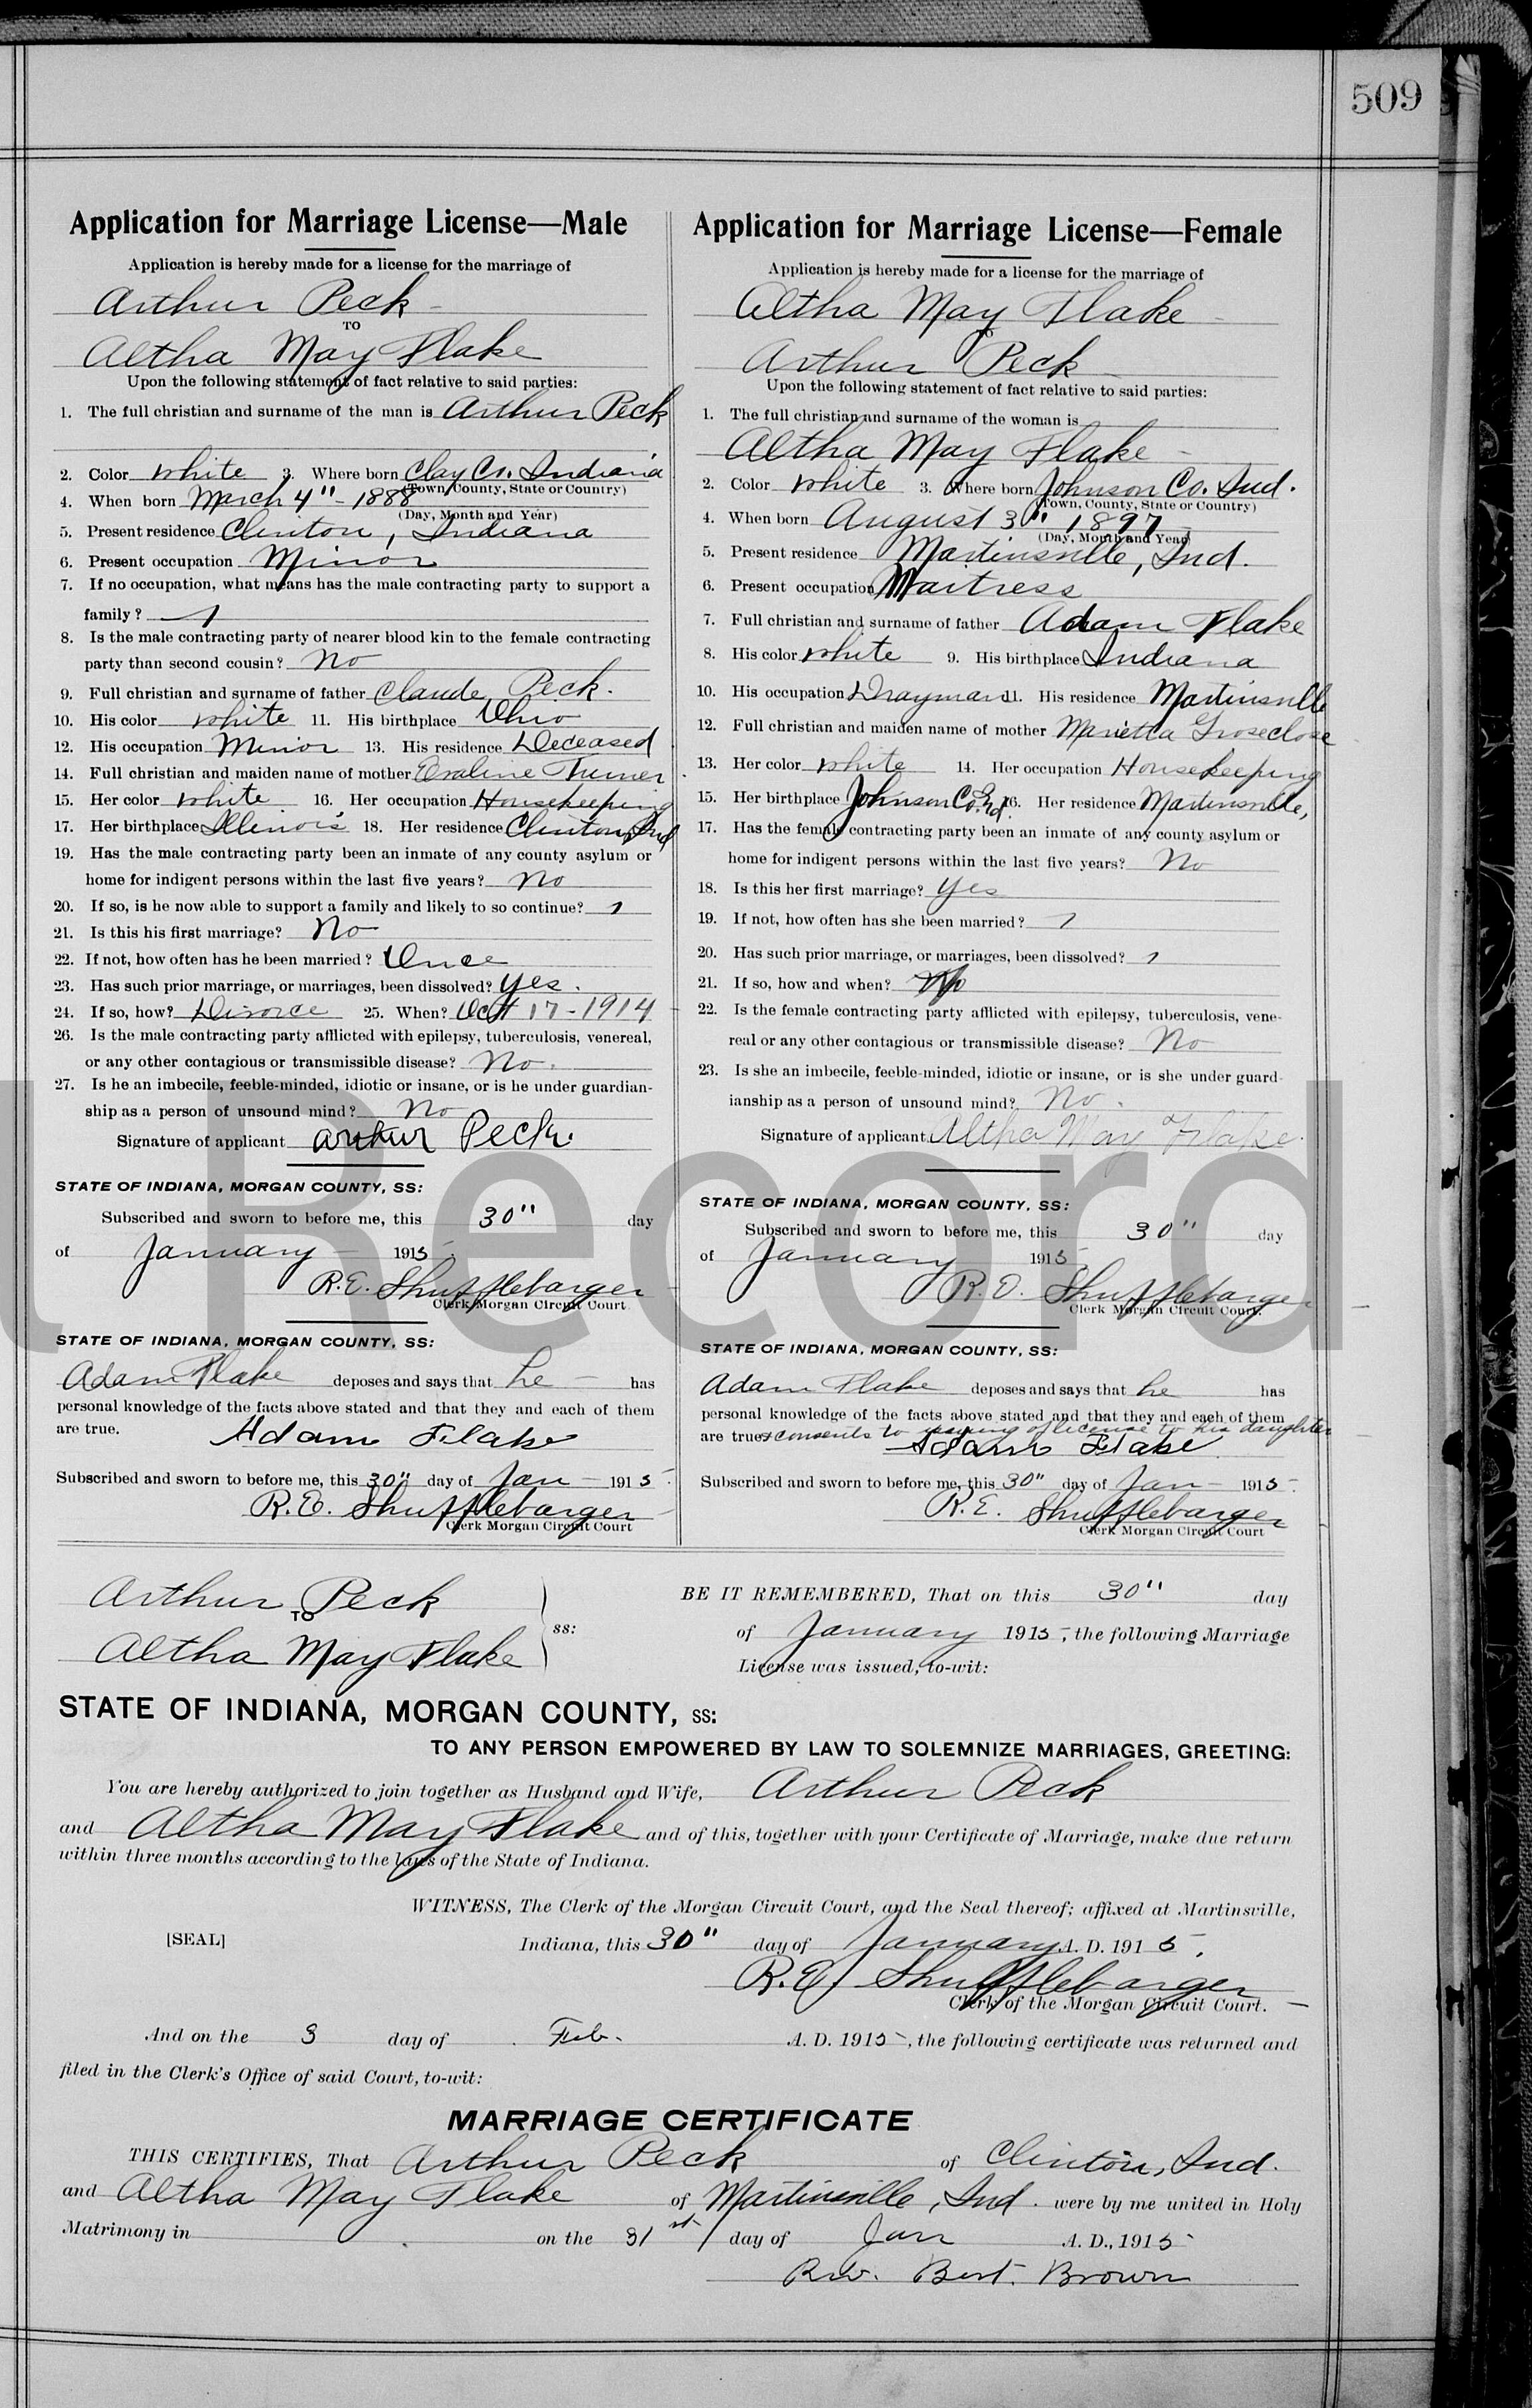 509
Application for Marriage License—Male
Application is hereby made for a license for the marriage of
Arthur Peck
TO
Altha May Flake
Upon the following statement of fact relative to said parties:
1. The full christian and surname of the man is Arthur Peck
2. Color White 3. Where born Clay Co. Indiana
(Town, County, State or Country)
4. When born March 4" - 1888
(Day, Month and Year)
5. Present residence Clinton, Indiana
6. Present occupation Minor
7. If no occupation, what means has the male contracting party to support a
family?
8. Is the male contracting party of nearer blood kin to the female contracting
party than second cousin? No
9. Full christian and surname of father Claude Peck.
10. His color White 11. His birthplace Ohio
12. His occupation Minor 13. His residence Deceased
14. Full christian and maiden name of mother Evaline Turner
15. Her color White 16. Her occupation Housekeeping
17. Her birthplace Illinois 18. Her residence Clinton, Ind
19. Has the male contracting party been an inmate of any county asylum or
home for indigent persons within the last five years? No
20. If so, is he now able to support a family and likely to so continue?
21. Is this his first marriage? No
22. If not, how often has he been married? Once
23. Has such prior marriage, or marriages, been dissolved? Yes.
24. If so, how? Divorce 25. When? Oct 17 - 1914
26. Is the male contracting party afflicted with epilepsy, tuberculosis, venereal,
or any other contagious or transmissible disease? No.
27. Is he an imbecile, feeble-minded, idiotic or insane, or is he under guardian-
ship as a person of unsound mind? No
Signature of applicant Arthur Peck.
STATE OF INDIANA, MORGAN COUNTY, SS:
Subscribed and sworn to before me, this 30" day
of January 1915
R. E. Shufflebarger
Clerk Morgan Circuit Court
STATE OF INDIANA, MORGAN COUNTY, SS:
Adam Flake deposes and says that he has
personal knowledge of the facts above stated and that they and each of them
are true.
Adam Flake
Subscribed and sworn to before me, this 30" day of Jan 1915
R. E. Shufflebarger
Clerk Morgan Circuit Court
Application for Marriage License—Female
Application is hereby made for a license for the marriage of
Altha May Flake
TO
Arthur Peck
Upon the following statement of fact relative to said parties:
1. The full christian and surname of the woman is
Altha May Flake
2. Color White 3. Where born Johnson Co. Ind.
(Town, County, State or Country)
4. When born August 3" 1897
(Day, Month and Year)
5. Present residence Martinsville, Ind.
6. Present occupation Waitress
7. Full christian and surname of father Adam Flake
8. His color White 9. His birthplace Indiana
10. His occupation Drayman 11. His residence Martinsville
12. Full christian and maiden name of mother Marietta Groseclose
13. Her color White 14. Her occupation Housekeeping
15. Her birthplace Johnson Co. Ind. 16. Her residence Martinsville,
17. Has the female contracting party been an inmate of any county asylum or
home for indigent persons within the last five years? No
18. Is this her first marriage? Yes
19. If not, how often has she been married?
20. Has such prior marriage, or marriages, been dissolved?
21. If so, how and when?
22. Is the female contracting party afflicted with epilepsy, tuberculosis, vene-
real or any other contagious or transmissible disease? No
23. Is she an imbecile, feeble-minded, idiotic or insane, or is she under guard-
ianship as a person of unsound mind? No.
Signature of applicant Altha May Flake.
STATE OF INDIANA, MORGAN COUNTY, SS:
Subscribed and sworn to before me, this 30" day
of January 1915
R. E. Shufflebarger
Clerk Morgan Circuit Court.
STATE OF INDIANA, MORGAN COUNTY, SS:
Adam Flake deposes and says that he has
personal knowledge of the facts above stated and that they and each of them
are true & consents to issuing of license to his daughter
Adam Flake
Subscribed and sworn to before me, this 30" day of Jan 1915
R. E. Shufflebarger
Clerk Morgan Circuit Court
Arthur Peck
TO
Altha May Flake
ss:
BE IT REMEMBERED, That on this 30" day
of January 1915, the following Marriage
License was issued, to-wit:
STATE OF INDIANA, MORGAN COUNTY, SS:
TO ANY PERSON EMPOWERED BY LAW TO SOLEMNIZE MARRIAGES, GREETING:
You are hereby authorized to join together as Husband and Wife, Arthur Peck
and Altha May Flake and of this, together with your Certificate of Marriage, make due return
within three months according to the laws of the State of Indiana.
WITNESS, The Clerk of the Morgan Circuit Court, and the Seal thereof; affixed at Martinsville,
[SEAL] Indiana, this 30" day of January A. D. 1915.
R. E. Shufflebarger
Clerk of the Morgan Circuit Court.
And on the 3 day of Feb. A. D. 1915, the following certificate was returned and
filed in the Clerk's Office of said Court, to-wit:
MARRIAGE CERTIFICATE
THIS CERTIFIES, That Arthur Peck of Clinton, Ind.
and Altha May Flake of Martinsville, Ind. were by me united in Holy
Matrimony in on the 31st day of Jan A. D., 1915
Rev. Bert. Brown
l Record